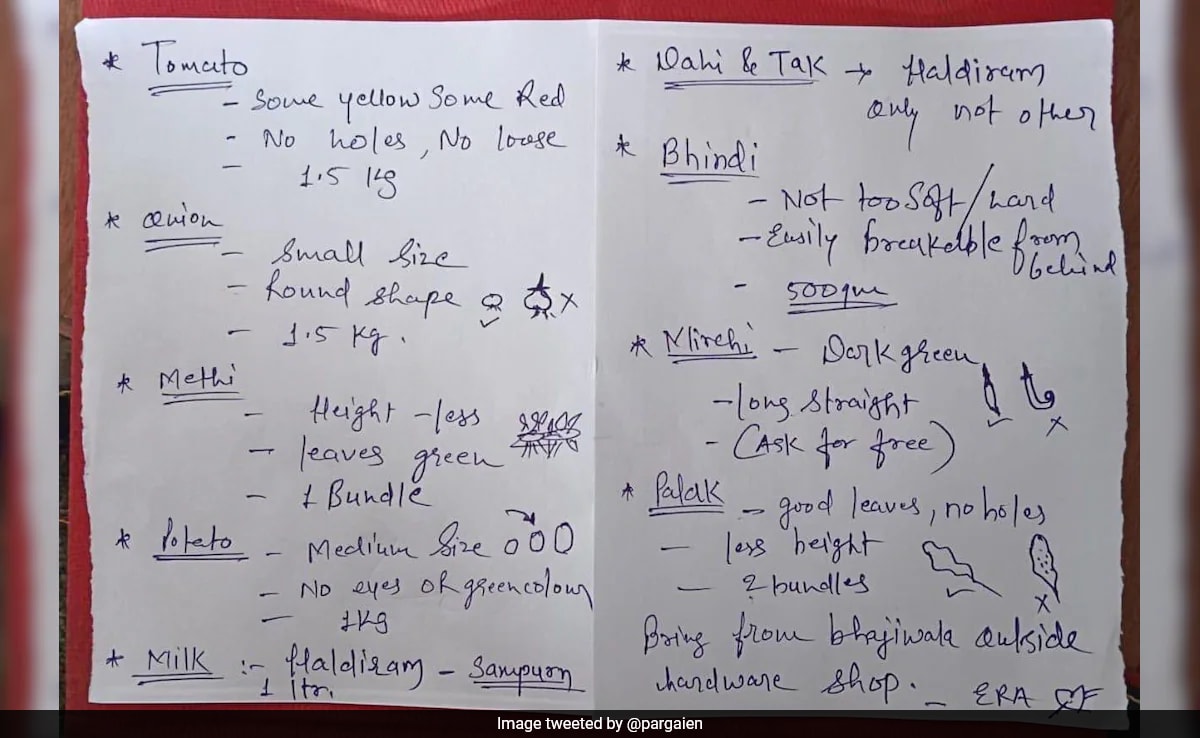 * Tomato
- Some yellow Some Red
- No holes, No loose
- 1.5 Kg
* Onion
- Small Size
- Round shape
- 1.5 Kg.
* Methi
- Height - less
- leaves green
- 1 Bundle
* Potato - Medium Size
- No eyes or green colour
- 1Kg
* Milk :- Haldiram - Sampurn
1 ltr.
* Dahi & Tak → Haldiram
only not other
* Bhindi
- Not too Soft / hard
- Easily breakelble from
behind
- 500gm
* Mirchi - Dark green
- long straight
- (Ask for free)
* Palak - good leaves, no holes
- less height
- 2 bundles
Bring from bhajiwala outside
hardware shop. - ERA
Image tweeted by @pargaien